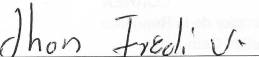 Jhon Fredi V.